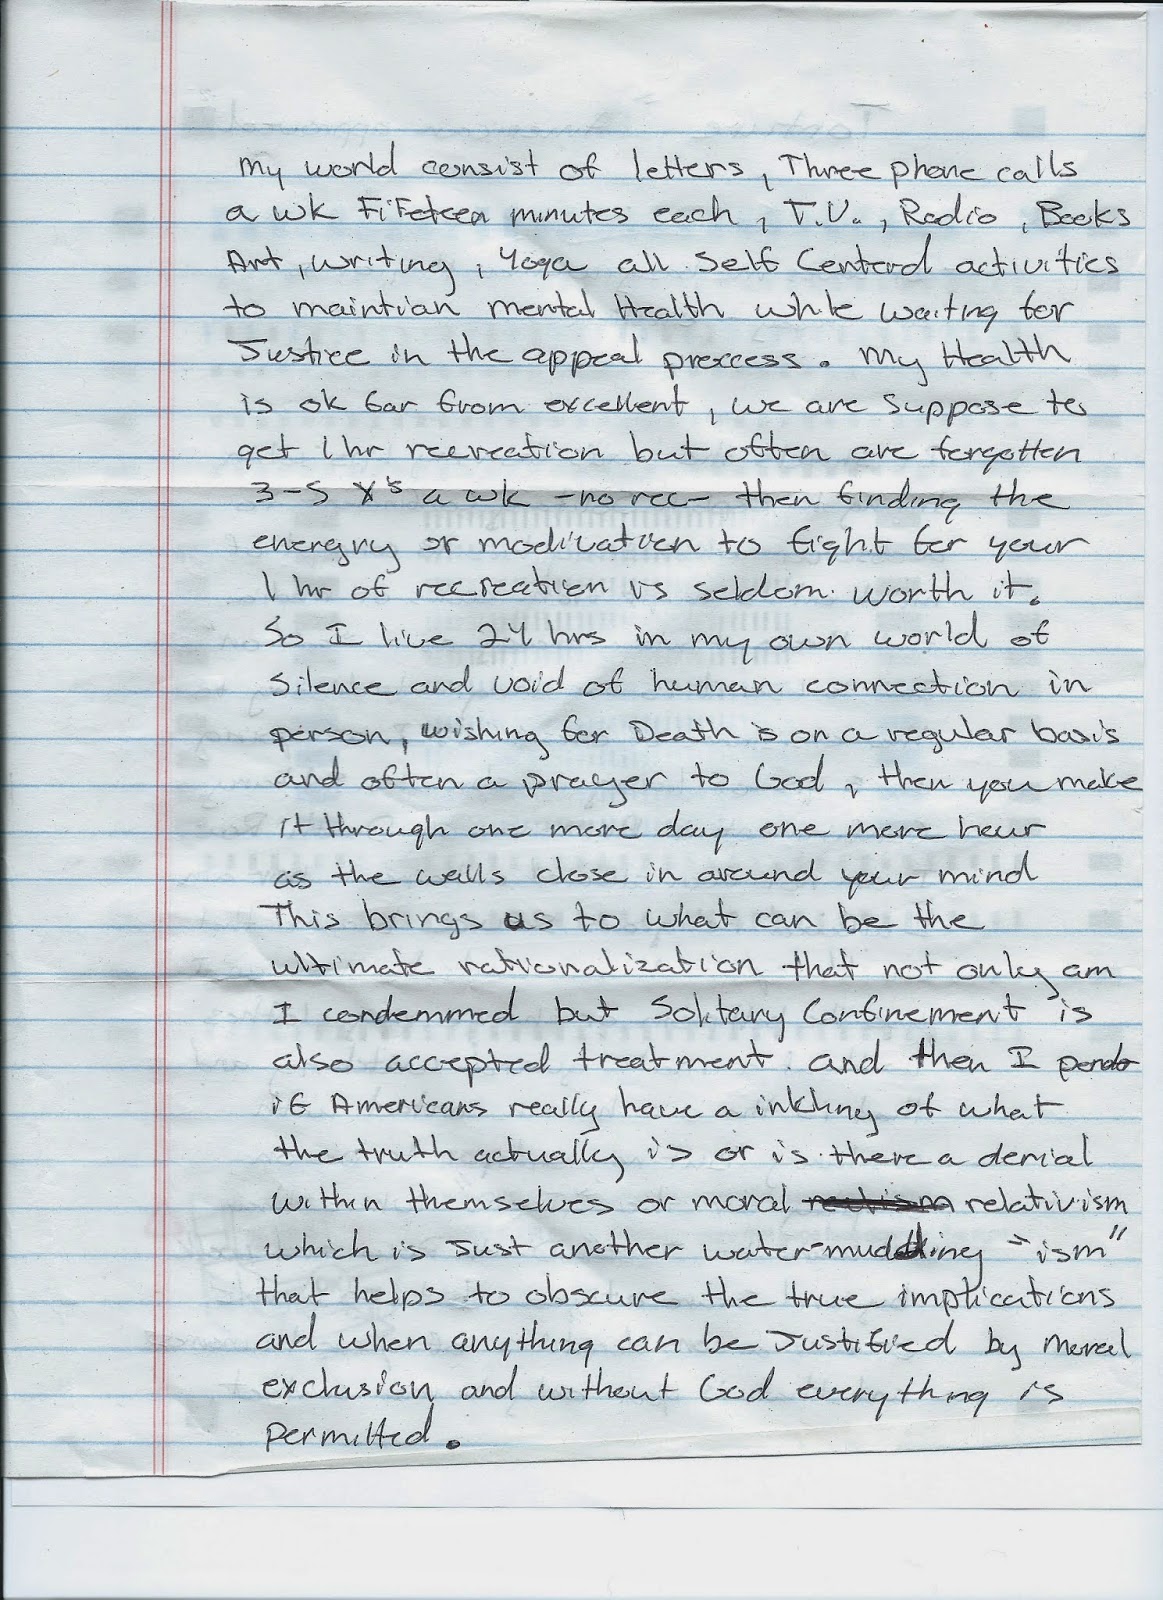 My world consist of letters, Three phone calls
a wk FiFeteen minutes each, T.V., Radio, Books
Art, writing, Yoga all Self Centerd activities
to maintian mental Health while waiting for
Justice in the appeal proccess. My Health
is ok far from excellent, we are suppose to
get 1 hr recreation but often are forgotten
3-5 X's a wk -no rec- then finding the
energry or modivation to fight for your
1 hr of recreation is seldom worth it.
So I live 24 hrs in my own world of
silence and void of human connection in
person, wishing for Death is on a regular basis
and often a prayer to God, then you make
it through one more day one more hour
as the walls close in around your mind
This brings us to what can be the
ultimate rationalization that not only am
I condemmed but Solitary Confinement is
also accepted treatment. and then I ponder
if Americans really have a inkling of what
the truth actually is or is there a denial
within themselves or moral relativism
which is Just another water-muddling "ism"
that helps to obscure the true implications
and when anything can be Justified by moral
exclusion and without God everything is
permitted.